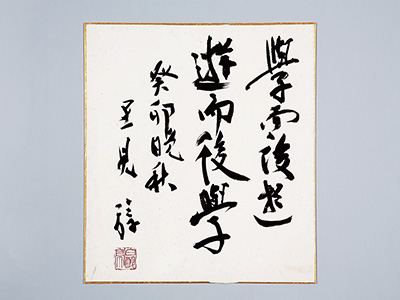 學而後遊
遊而後學
癸卯晩秋
里見弴